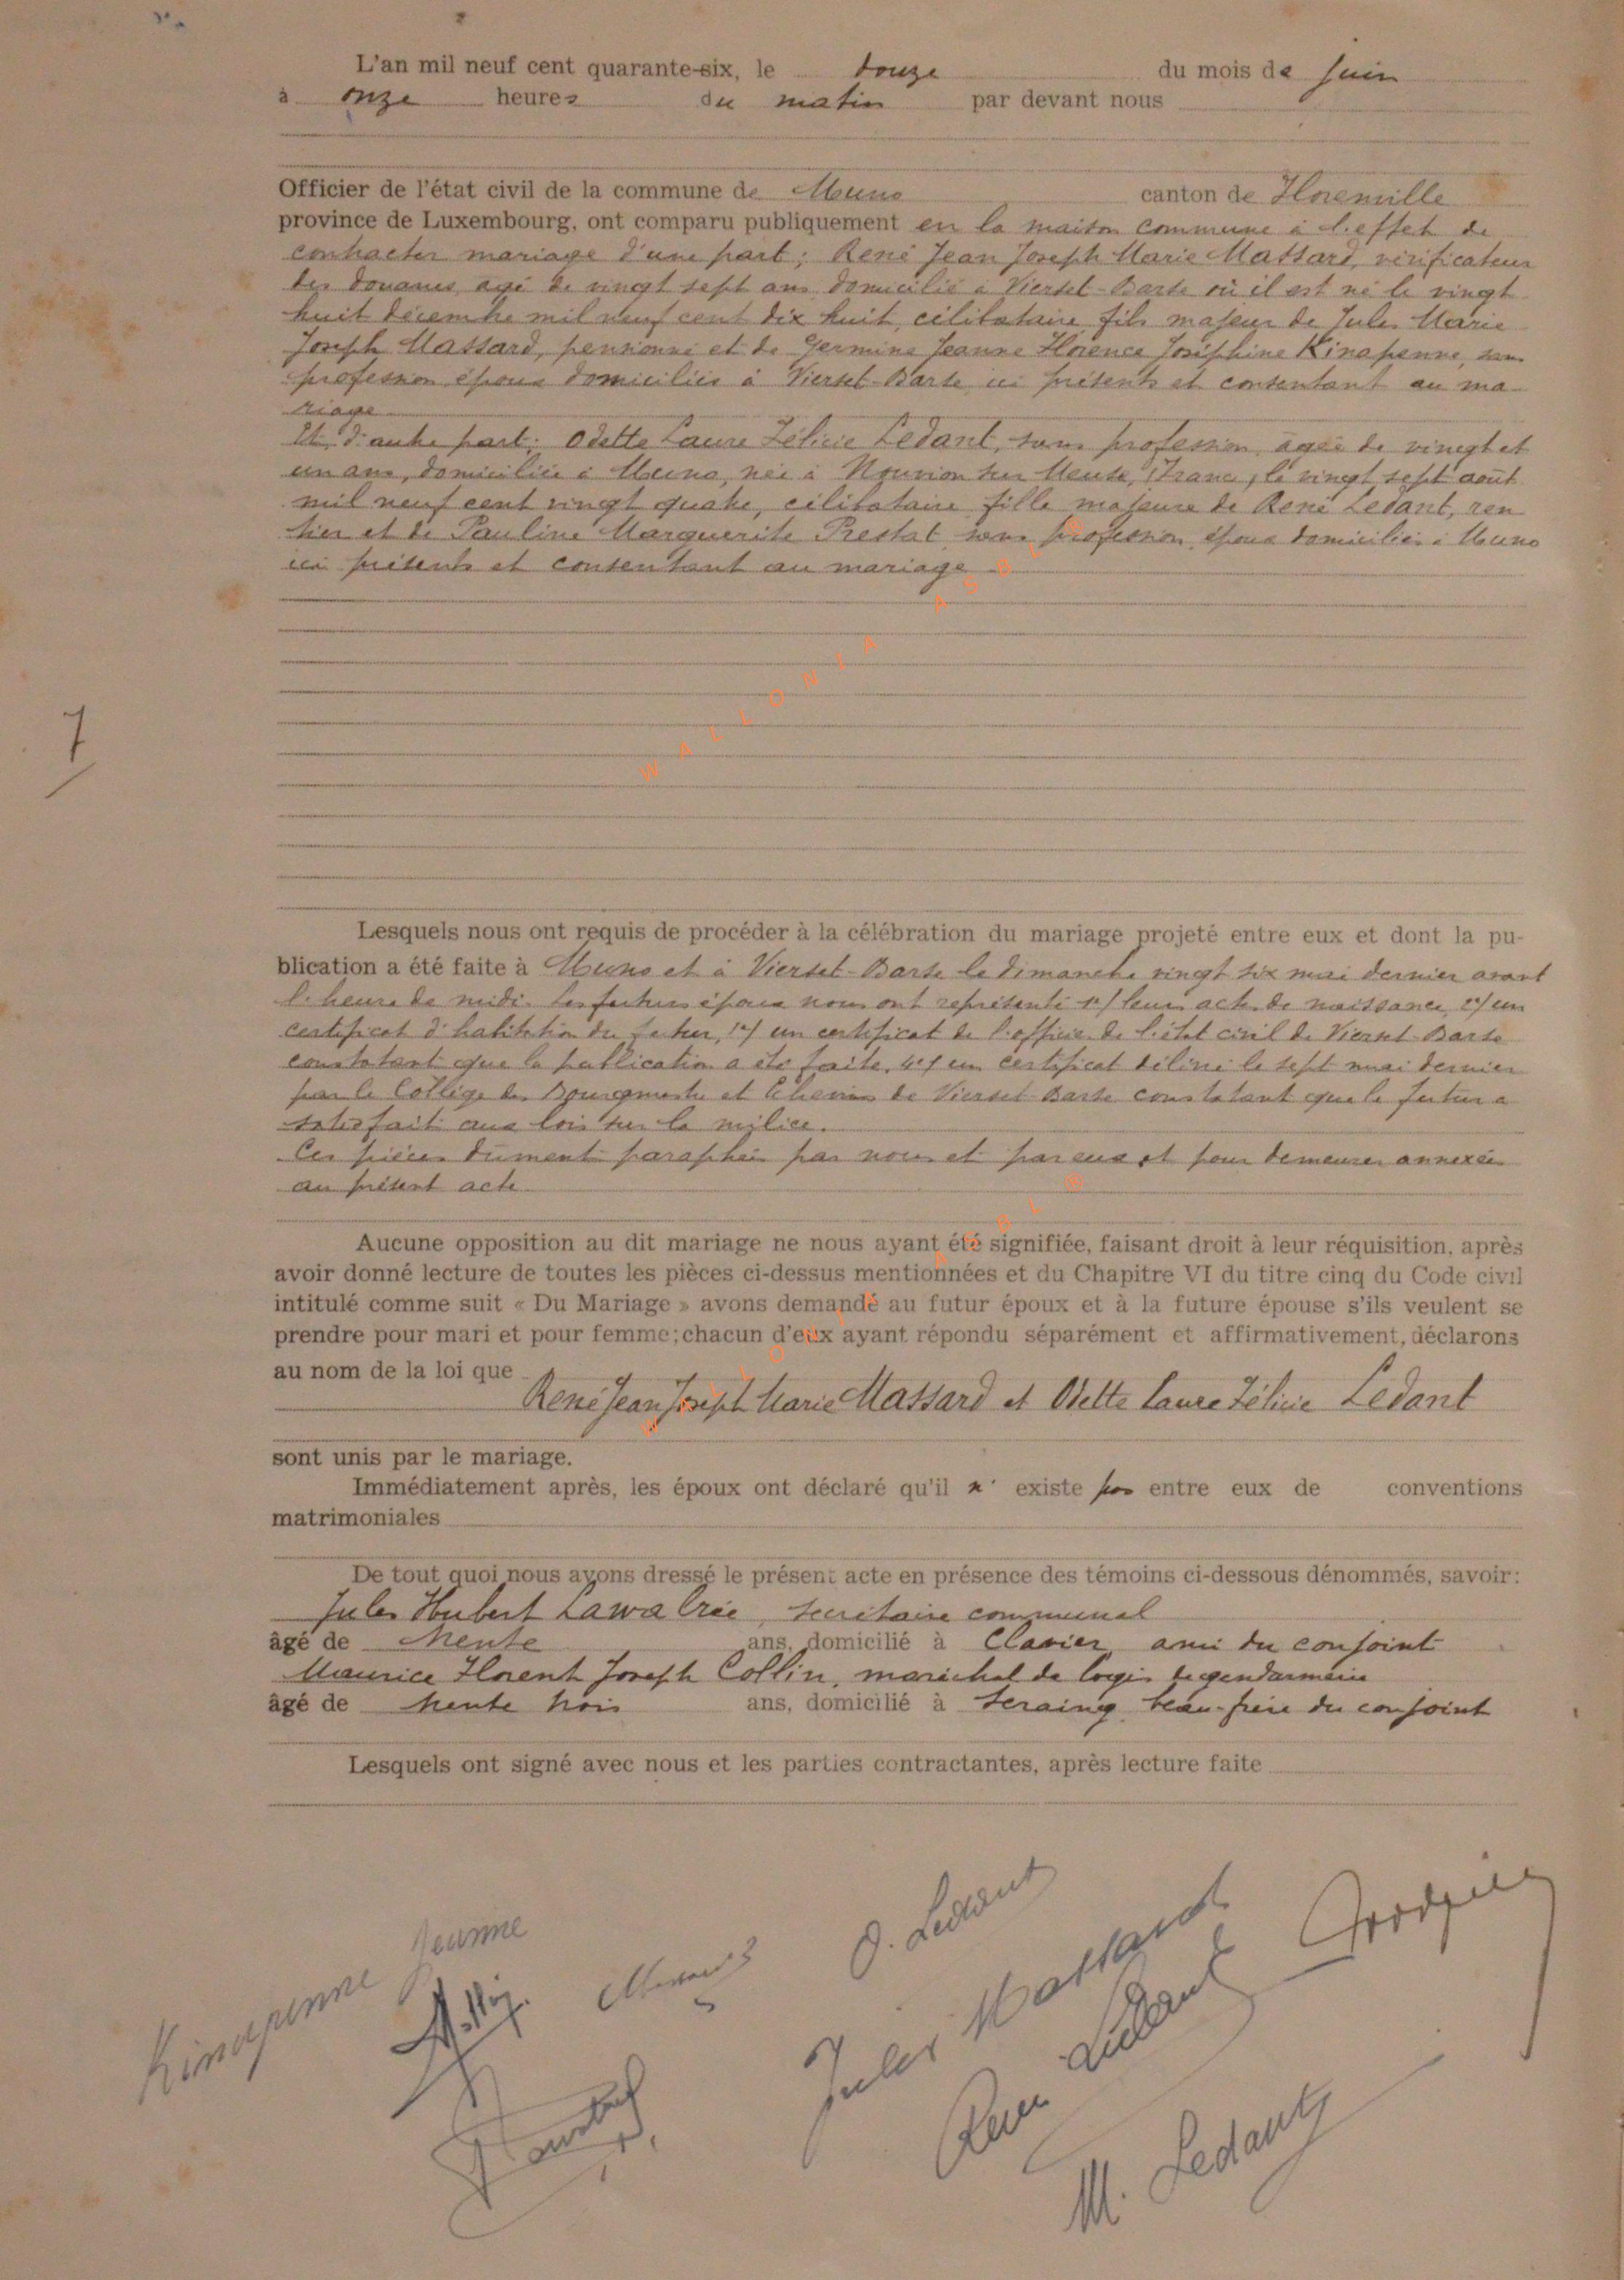 L'an mil neuf cent quarante-six, le douze du mois de juin
à onze heures du matin par devant nous
Officier de l'état civil de la commune de Muno canton de Florenville
province de Luxembourg, ont comparu publiquement en la maison commune à l'effet de
contracter mariage d'une part: René Jean Joseph Marie Massard, vérificateur
des douanes, âgé de vingt sept ans domicilié à Vierset-Barse où il est né le vingt
huit décembre mil neuf cent dix huit, célibataire, fils majeur de Jules Marie
Joseph Massard, pensionné et de Germine Jeanne Florence Joséphine Kinapenne, sans
profession époux domiciliés à Vierset-Barse ici présents et consentant au ma-
riage
Et d'autre part: Odette Laure Félicie Ledant, sans profession, âgée de vingt et
un ans, domiciliée à Muno, née à Nouvion sur Meuse, (France), le vingt sept août
mil neuf cent vingt quatre, célibataire, fille majeure de René Ledant, ren
tier et de Pauline Marguerite Prestat sans profession, époux domiciliés à Muno
ici présents et consentant au mariage
7
WALLONIA ASBL ®
Lesquels nous ont requis de procéder à la célébration du mariage projeté entre eux et dont la pu-
blication a été faite à Muno et à Vierset-Barse le dimanche vingt six mai dernier avant
l'heure de midi. Les futurs époux nous ont représenté 1°/ leurs actes de naissance, 2°/ un
certificat d'habitation du futur, 3°/ un certificat de l'officier de l'état civil de Vierset-Barse
constatant que la publication a été faite, 4°/ un certificat délivré le sept mai dernier
par le Collège des Bourgmestre et Echevins de Vierset-Barse constatant que le futur a
satisfait aux lois sur la milice.
Ces pièces dûment paraphées par nous et par eux et pour demeurer annexées
au présent acte
Aucune opposition au dit mariage ne nous ayant été signifiée, faisant droit à leur réquisition, après
avoir donné lecture de toutes les pièces ci-dessus mentionnées et du Chapitre VI du titre cinq du Code civil
intitulé comme suit « Du Mariage » avons demandé au futur époux et à la future épouse s'ils veulent se
prendre pour mari et pour femme; chacun d'eux ayant répondu séparément et affirmativement, déclarons
au nom de la loi que
René Jean Joseph Marie Massard et Odette Laure Félicie Ledant
sont unis par le mariage.
Immédiatement après, les époux ont déclaré qu'il n' existe pas entre eux de conventions
matrimoniales
De tout quoi nous avons dressé le présent acte en présence des témoins ci-dessous dénommés, savoir:
Jules Hubert Lawalrée, secrétaire communal
âgé de trente ans, domicilié à Clavier, ami du conjoint
Maurice Florent Joseph Collin, maréchal de logis de gendarmerie
âgé de trente trois ans, domicilié à Seraing beau-frère du conjoint
Lesquels ont signé avec nous et les parties contractantes, après lecture faite
Kinapenne Jeanne
O. Ledant
Jules Massard
René Ledant
M. Ledant